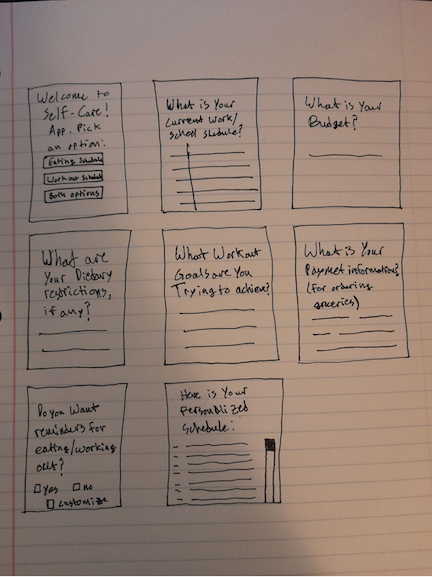 Welcome to
Self-Care!
App. Pick
an option:
Eating Schedule
Workout Schedule
Both options
What is Your
Current Work/
School shedule?
What is Your
Budget?
What are
Your Dietary
restrictions,
if any?
What Workout
Goals are You
Trying to achieve?
What is Your
Payment information?
(for ordering
groceries)
Do you Want
reminders for
eating/working
out?
Yes no
Customize
Here is Your
Personalized
Schedule: